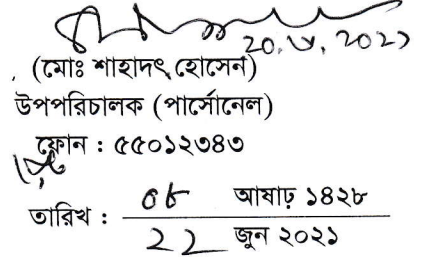 ২০.৬.২০২১
(মোঃ শাহাদৎ হোসেন)
উপপরিচালক (পার্সোনেল)
ফোন : ৫৫০১২৩৪৩
০৮ আষাঢ় ১৪২৮
তারিখ :
২২ জুন ২০২১